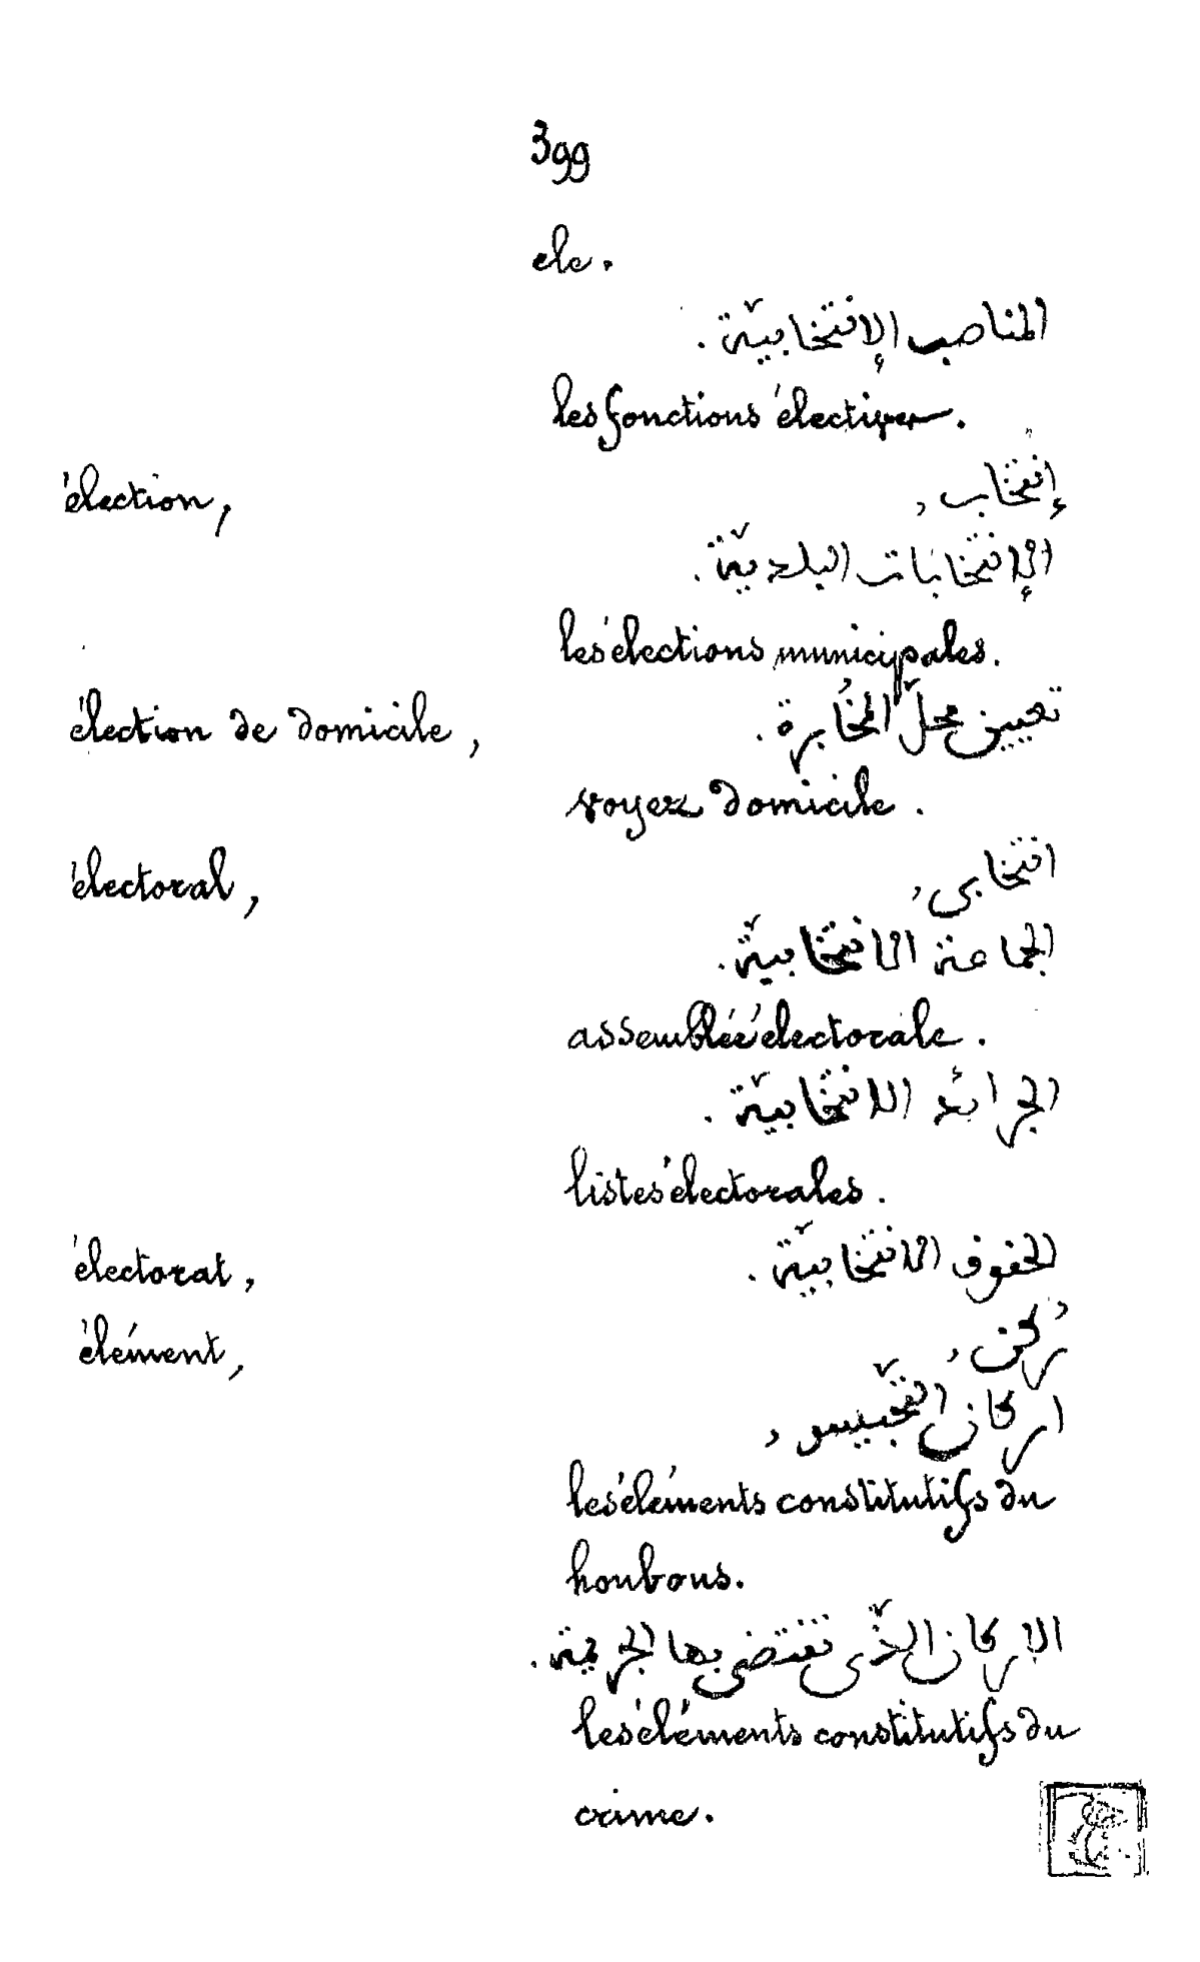 399
ele.
المناصب الإنتخابيّة.
les fonctions électives.
élection,
إنتخاب,
الإنتخابات البلديّة.
les élections municipales.
élection de domicile,
تعيين محلّ المُخابرة.
voyez domicile.
électoral,
انتخابي,
الجماعة الانتخابيّة.
assemblée électorale.
الجرائد الانتخابيّة.
listes électorales.
électorat,
الحقوق الانتخابيّة.
élément,
رُكن,
اركان التّحبيس,
les éléments constitutifs du
houbous.
الاركان الذّى تقتضى بها الجريمة.
les éléments constitutifs du
crime.